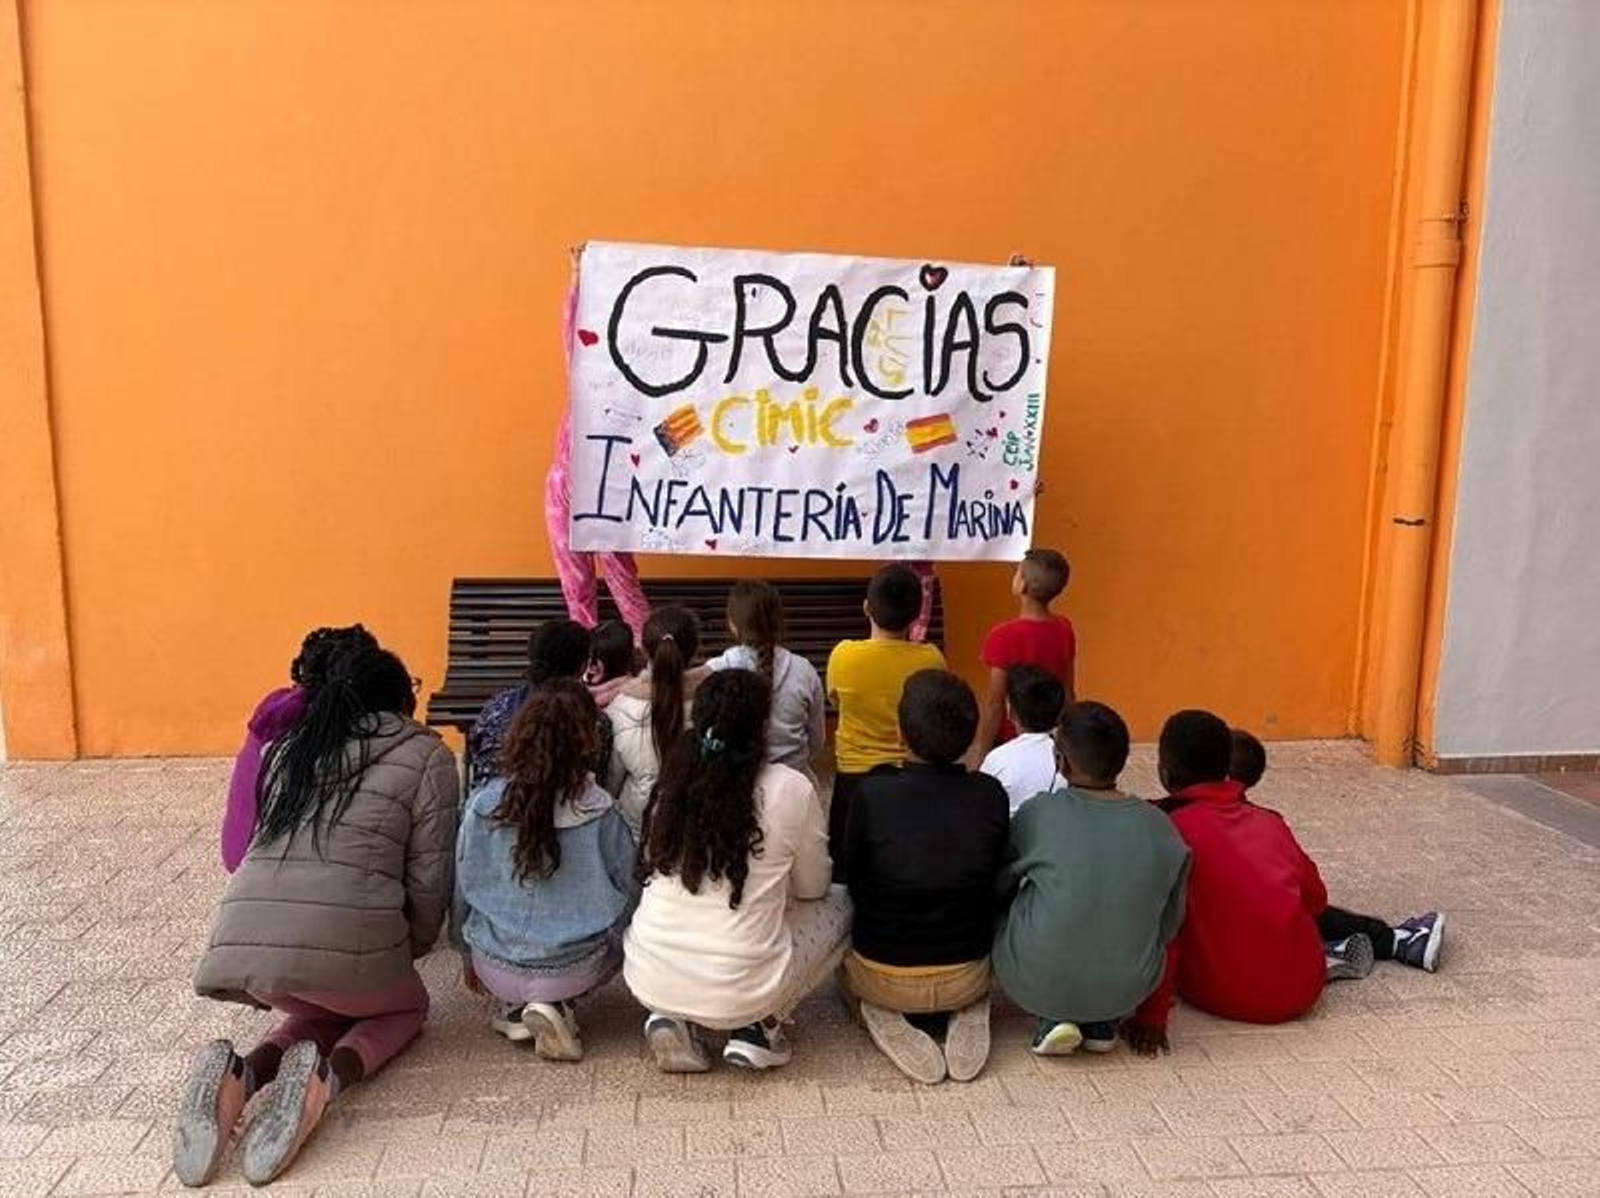 GRACIAS
CIMIC
INFANTERÍA DE MARINA
CEIP
JUAN XXIII